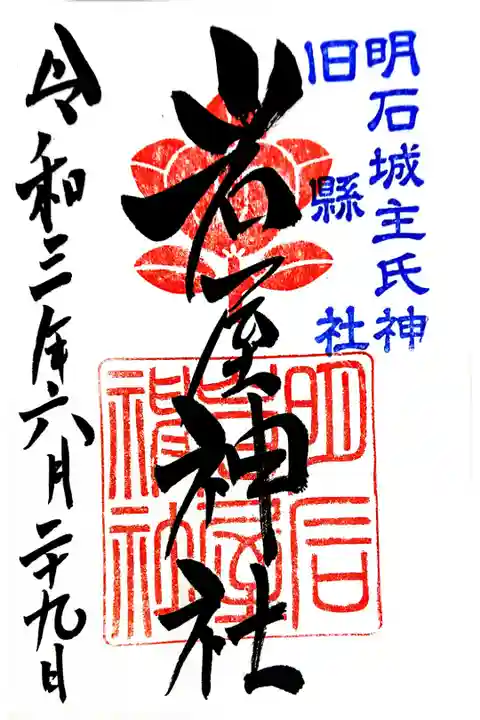 明石城主氏神
旧縣社
岩屋神社
明石
岩屋
神社
令和三年六月二十九日